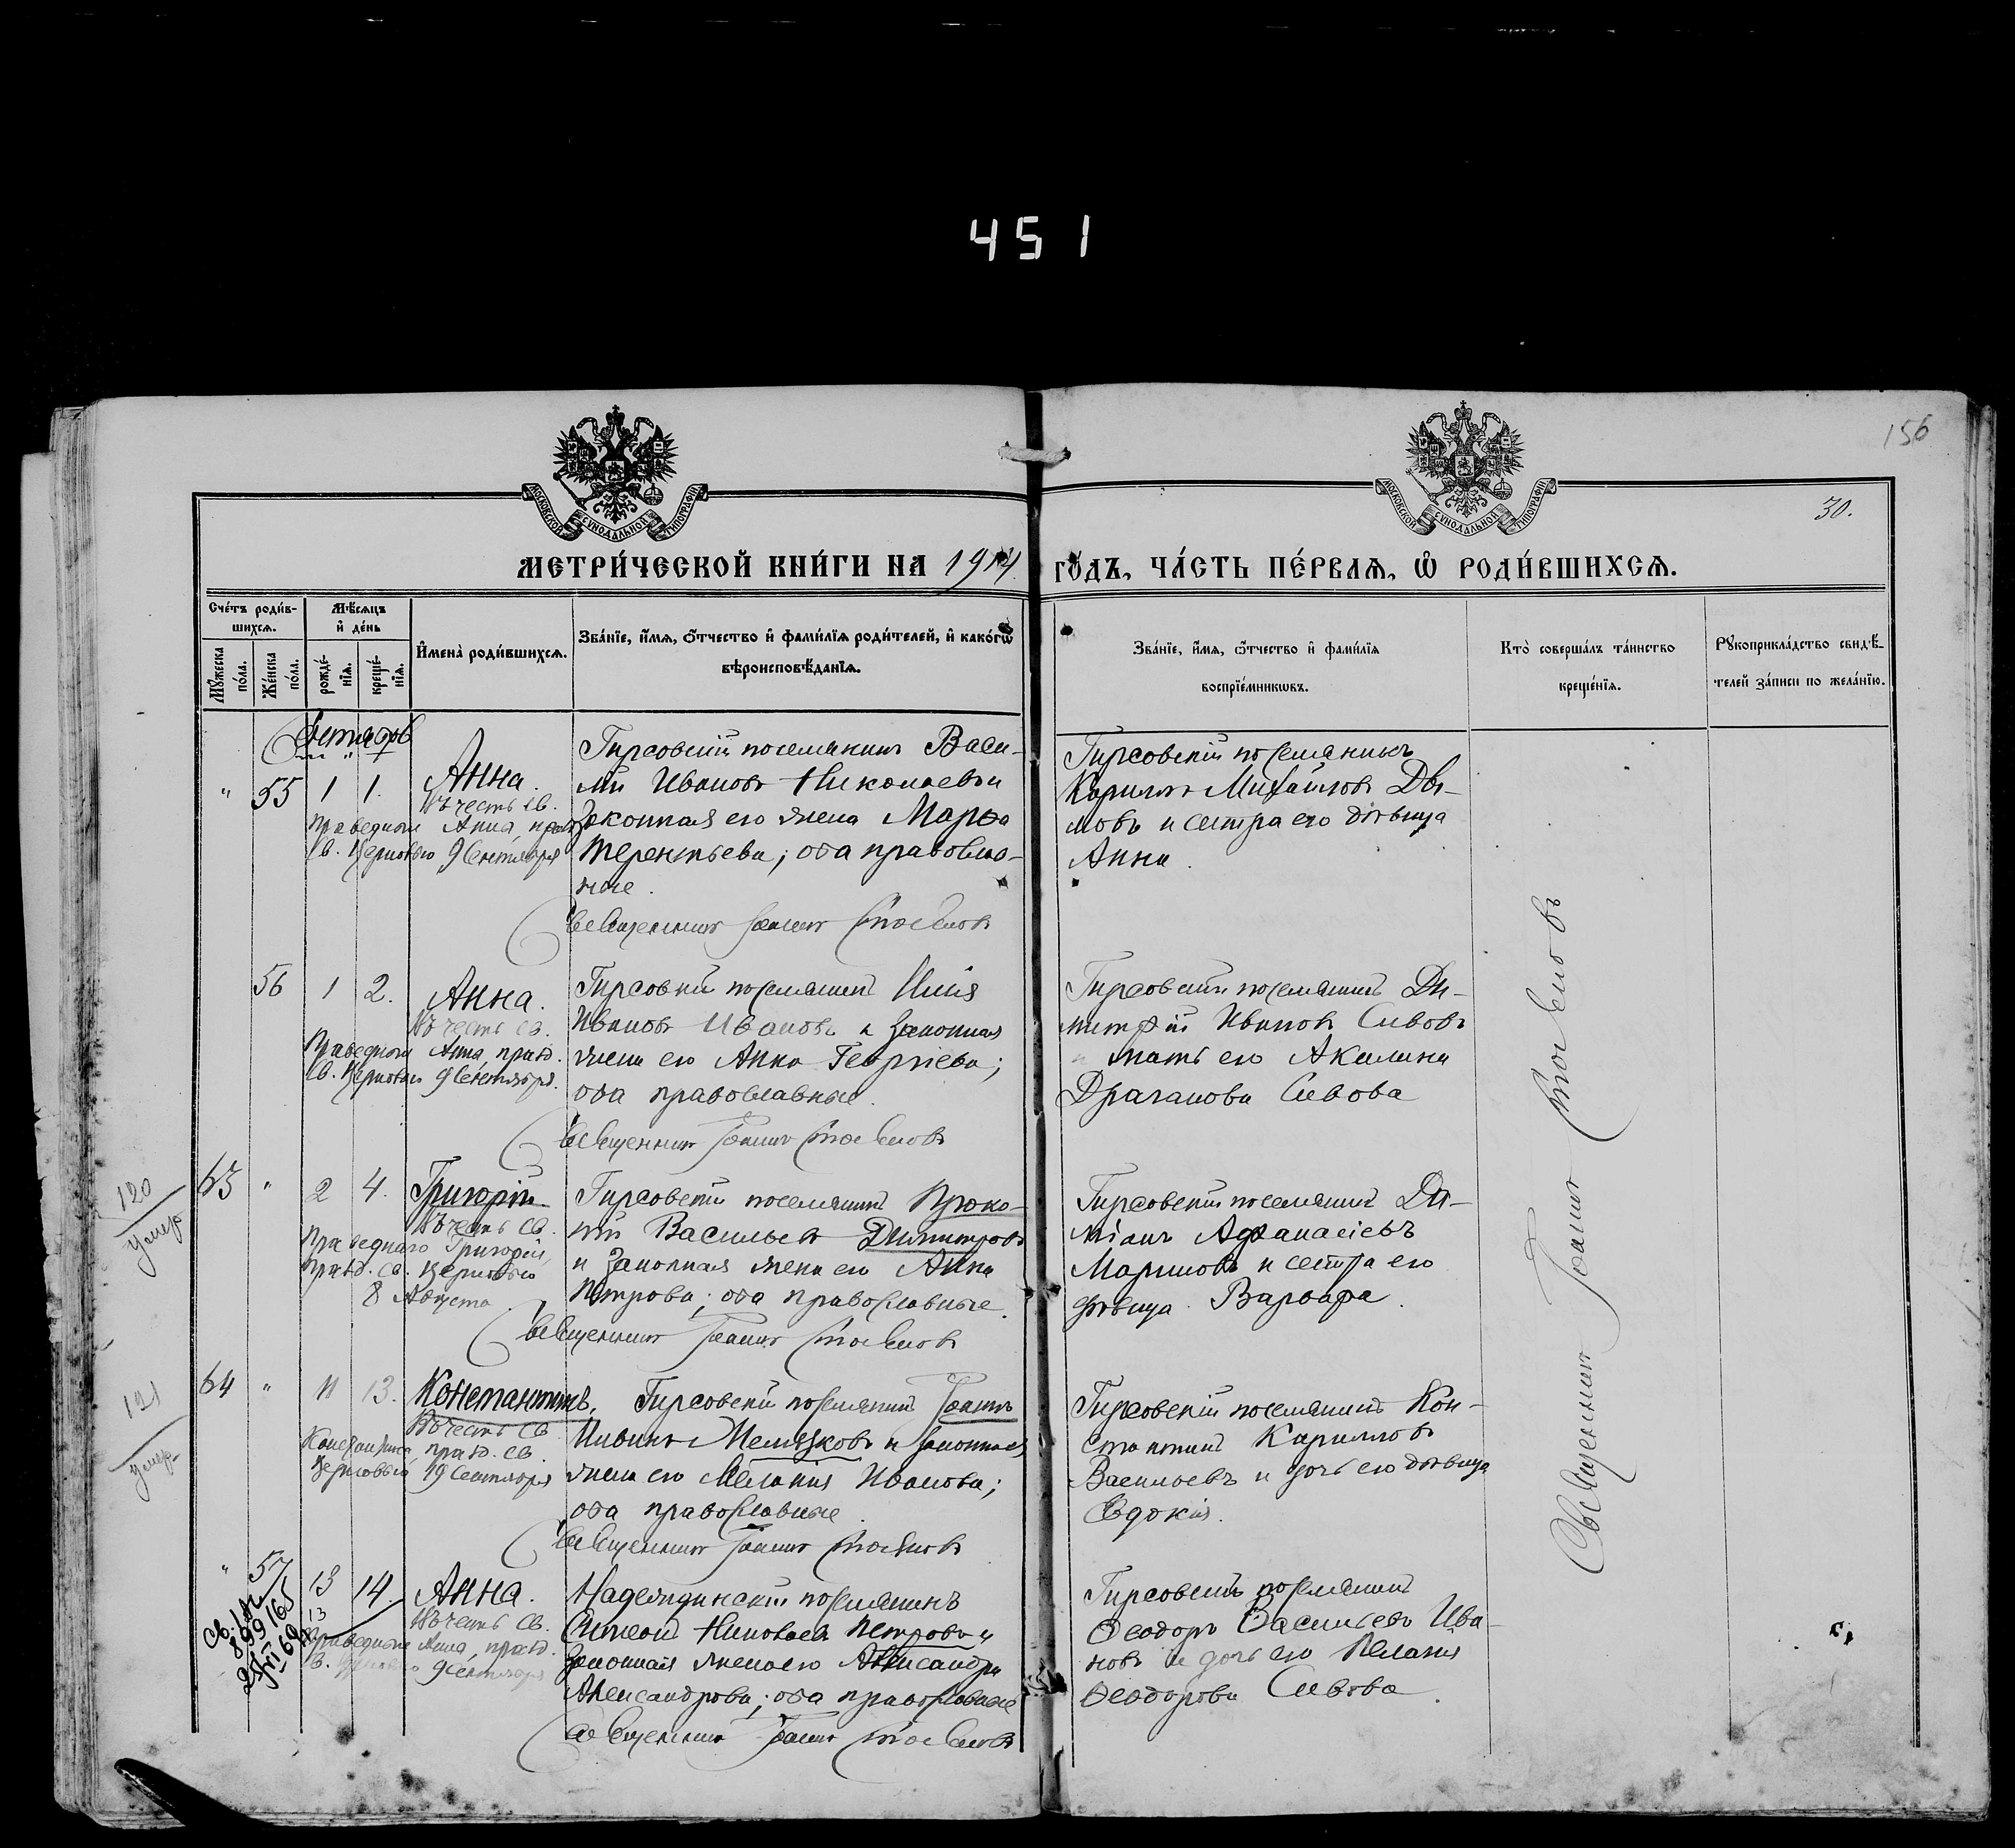 451
156
30.
МОСКОВСКОЙ СУНОДАЛЬНОЙ ТИПОГРАФІИ
МОСКОВСКОЙ СУНОДАЛЬНОЙ ТИПОГРАФІИ
МЕТРИ́ЧЕСКОЙ КНИ́ГИ НА 1914 ГО́ДЪ, ЧА́СТЬ ПЕ́РВАѦ, Ѡ РОДИ́ВШИХСѦ.
Сче́тъ роди́в-
шихсѧ.
Мѣ́сѧцъ
и҆ де́нь
Мꙋ́жеска по́ла.
Же́нска по́ла.
рожде́-
нїѧ.
креще́-
нїѧ.
И҆мена̀ роди́вшихсѧ.
Зва́нїе, и҆́мѧ, ѻ҆́тчество и҆ фами́лїѧ роди́телей, и҆ како́гѡ
вѣроисповѣ́данїѧ.
Зва́нїе, и҆́мѧ, ѻ҆́тчество и҆ фами́лїѧ
воспрїе́мникѡвъ.
Кто̀ соверша́лъ та́инство
креще́нїѧ.
Рꙋкоприкла́дство свидѣ́-
телей за́писи по жела́нїю.
Сентябрь
" 55 1 1. Анна.
Въ честь св.
праведной Анны, празд.
св. Церковью 9 Сентября
Гирсовскій поселянинъ Васи-
лій Ивановъ Николаевъ и
законная его жена Марѳа
Терентьева; оба православ-
ные.
Священникъ Іоаннъ
Гирсовскій поселянинъ
Кириллъ Михайловъ Ды-
мовъ и сестра его дѣвица
Анна.
56 1 2. Анна.
Въ честь св.
Праведной Анны, празд.
св. Церковью 9 Сентября.
Гирсовскій поселянинъ Илія
Ивановъ Ивановъ и законная
жена его Анна Георгіева;
оба православные.
Священникъ Іоаннъ
Гирсовскій поселянинъ Ди-
митрій Ивановъ Сивовъ
и мать его Акилина
Драганова Сивова
120
умер
63 " 2 4. Григорій.
Въ честь св.
Праведнаго Григорія,
празд. св. Церковью
8 Августа.
Гирсовскій поселянинъ Проко-
пій Васильевъ Димитровъ
и законная жена его Анна
Петрова; оба православные.
Священникъ Іоаннъ
Гирсовскій поселянинъ Да-
міанъ Аѳанасіевъ
Мариновъ и сестра его
дѣвица Варвара.
121
умер.
64 " 11 13. Константинъ.
Въ честь св.
Константина празд. св.
Церковью 19 Сентября
Гирсовскій поселянинъ Іоаннъ
и законная
жена его Меланія Иванова;
оба православные.
Священникъ Іоаннъ
Гирсовскій поселянинъ Кон-
стантинъ Кирилловъ
Васильевъ и дочь его дѣвица
Евдокія.
" 57 13 14. Анна.
Въ честь св.
Праведной Анны, празд.
св. Церковью 9 Сентября
Надеждинскій поселянинъ
Симеонъ Николаевъ Петровъ и
законная жена его Александра
Александрова; оба православные
Священникъ Іоаннъ
Гирсовскій поселянинъ
Ѳеодоръ Васильевъ Ива-
новъ и дочь его Пелагія
Ѳеодорова Сивова.
Священникъ Іоаннъ